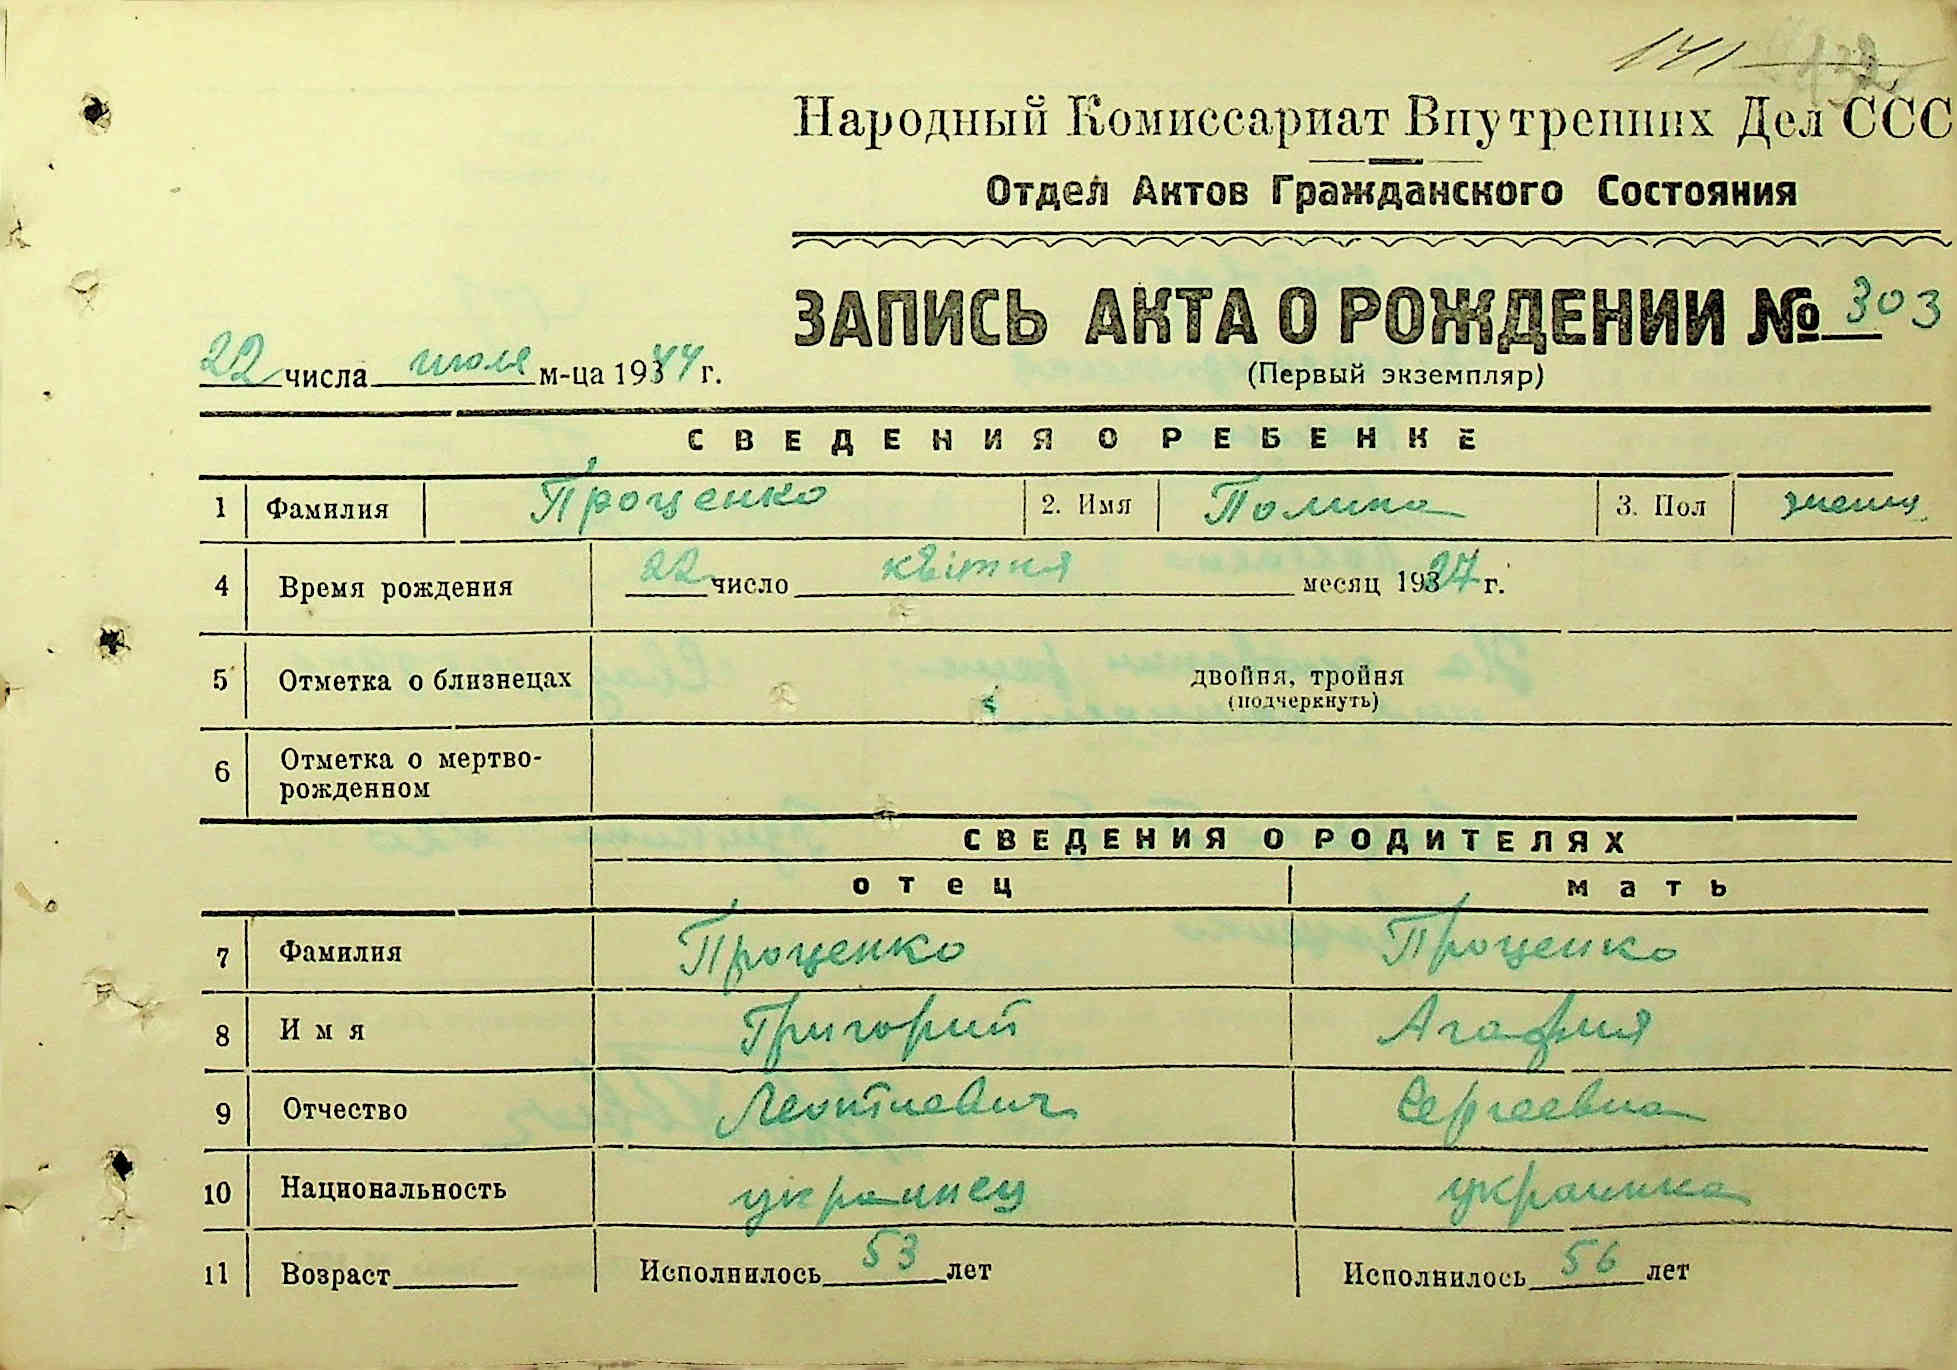 141
Народный Комиссариат Внутренних Дел ССС
Отдел Актов Гражданского Состояния
ЗАПИСЬ АКТА О РОЖДЕНИИ № 303
22 числа июля м-ца 1944 г.
(Первый экземпляр)
СВЕДЕНИЯ О РЕБЕНКЕ
1 Фамилия Проценко 2. Имя Полина 3. Пол женск
4 Время рождения 22 число квітня месяц 1927 г.
5 Отметка о близнецах двойня, тройня
(подчеркнуть)
6 Отметка о мертво-
рожденном
СВЕДЕНИЯ О РОДИТЕЛЯХ
отец мать
7 Фамилия Проценко Проценко
8 Имя Григорий Агафия
9 Отчество Леонтиевич Сергеевна
10 Национальность украинец украинка
11 Возраст Исполнилось 53 лет Исполнилось 56 лет